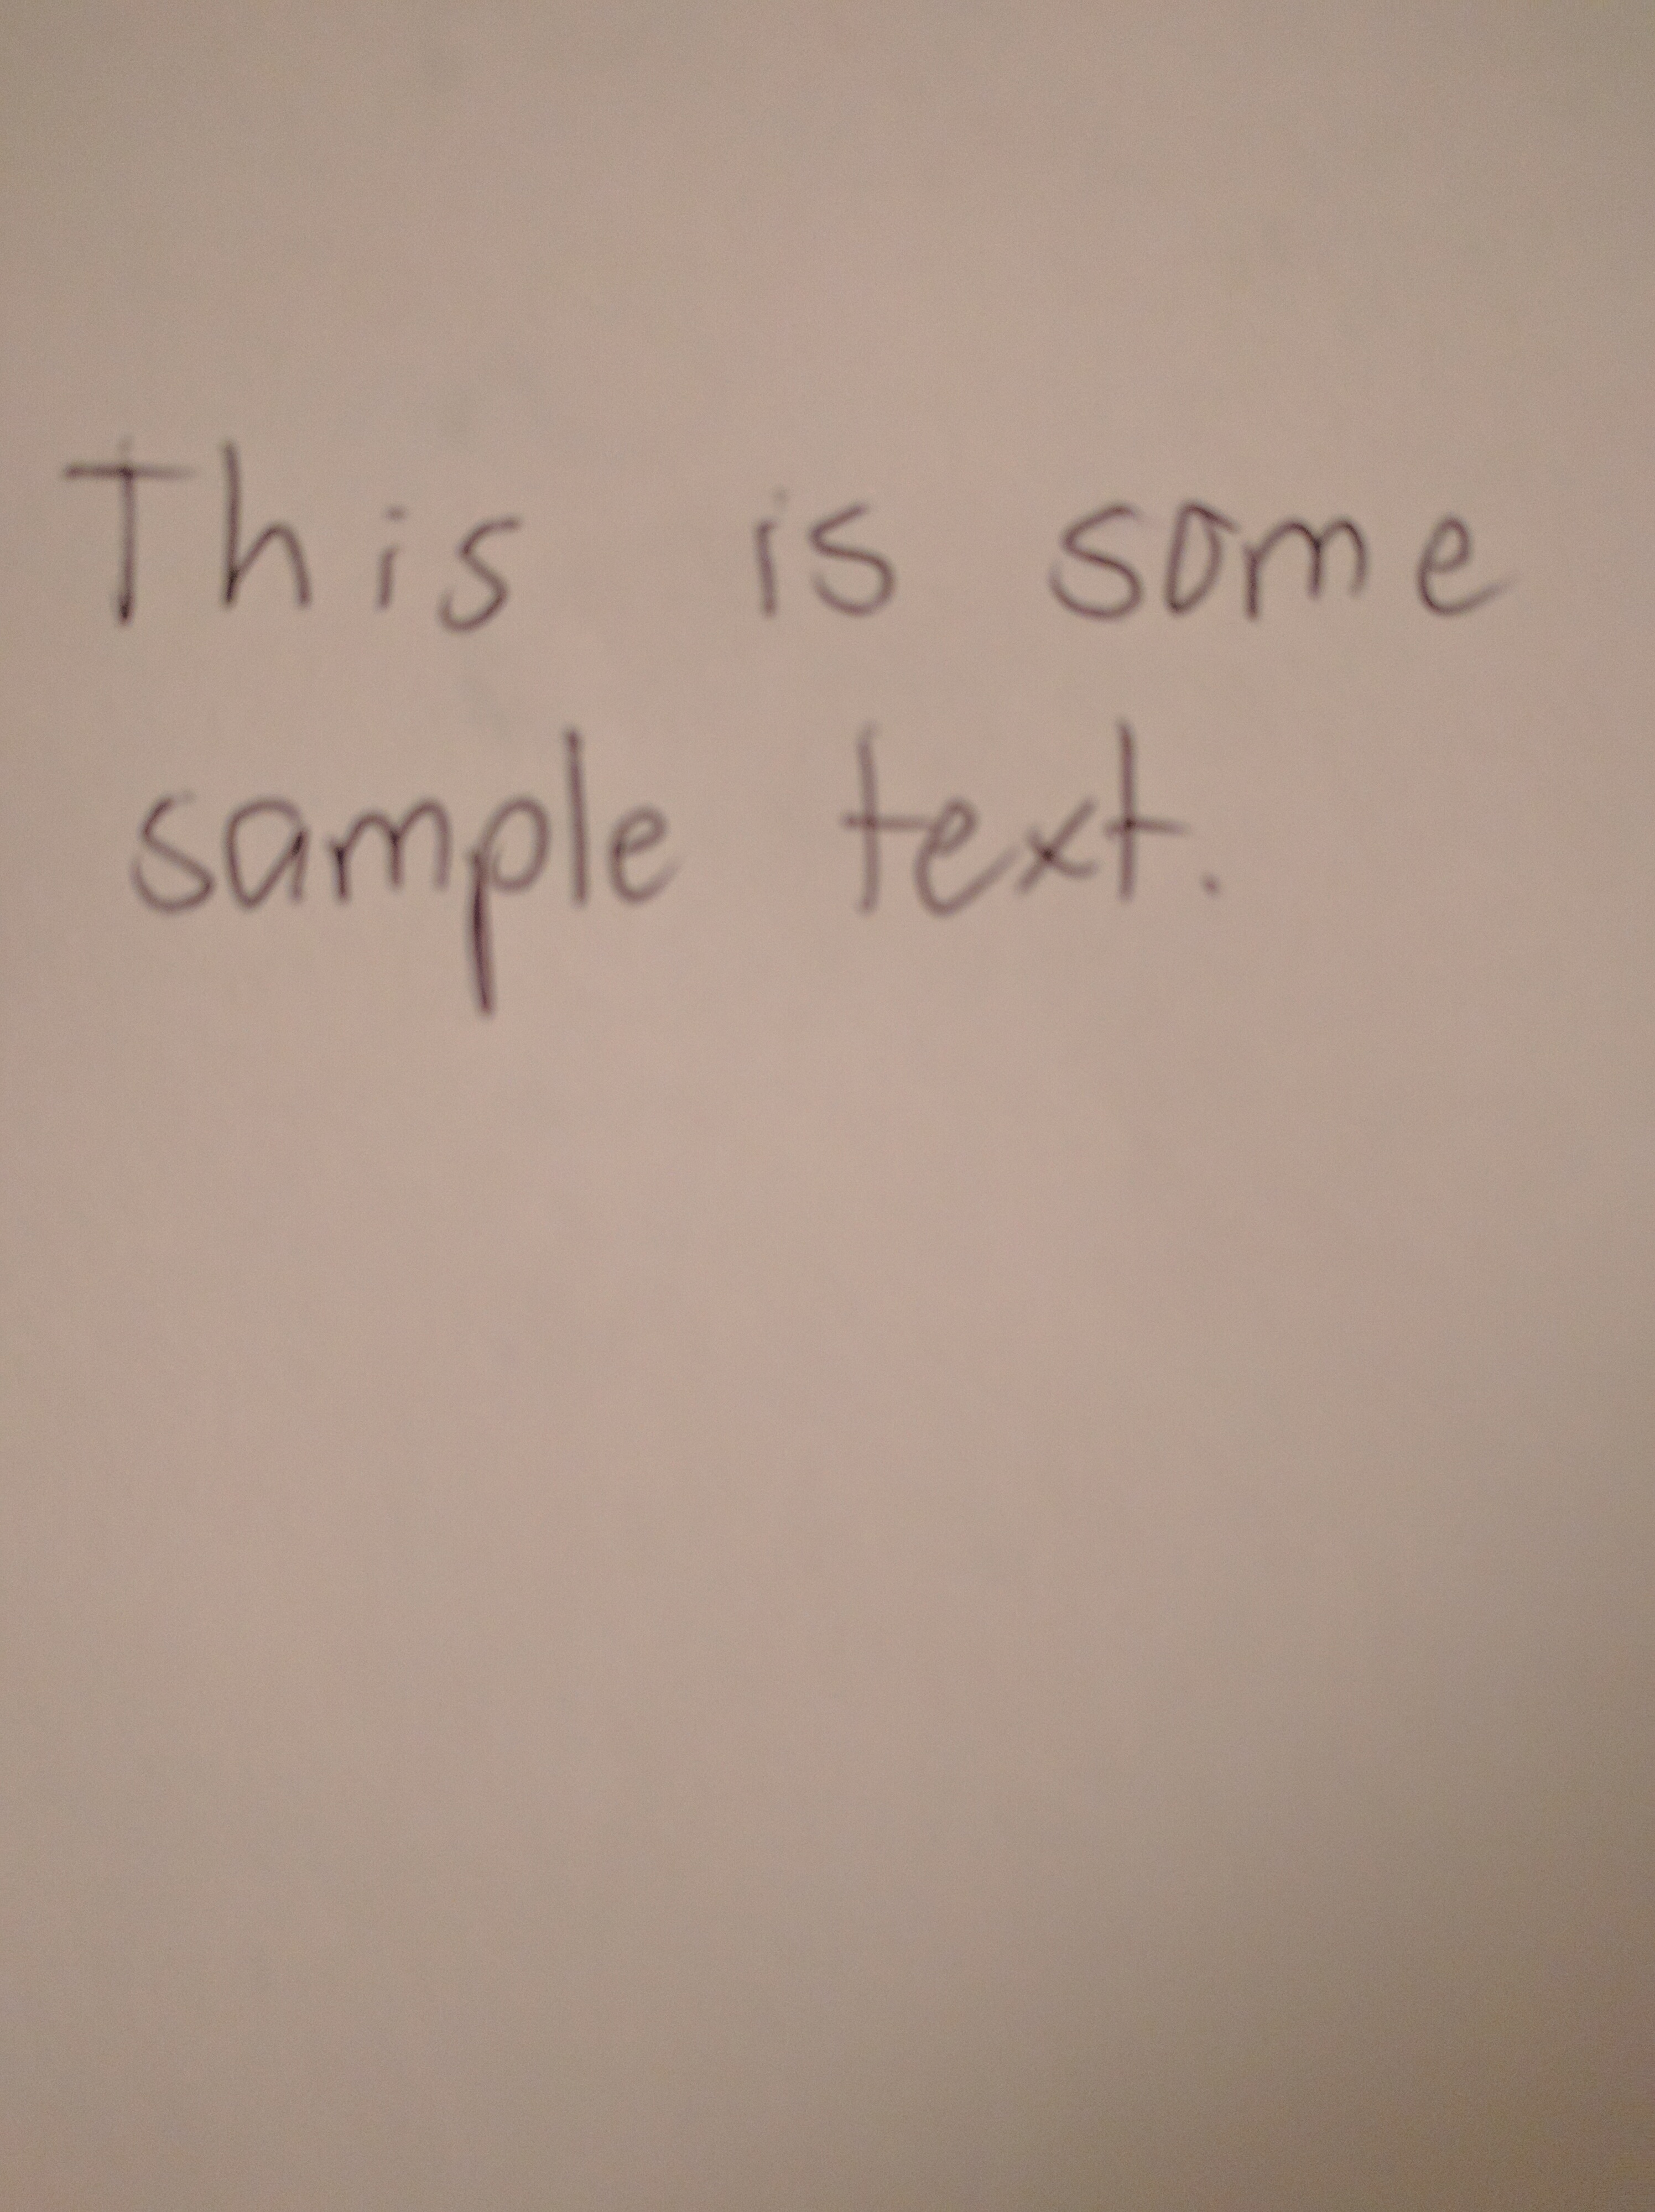 This is some
sample text.